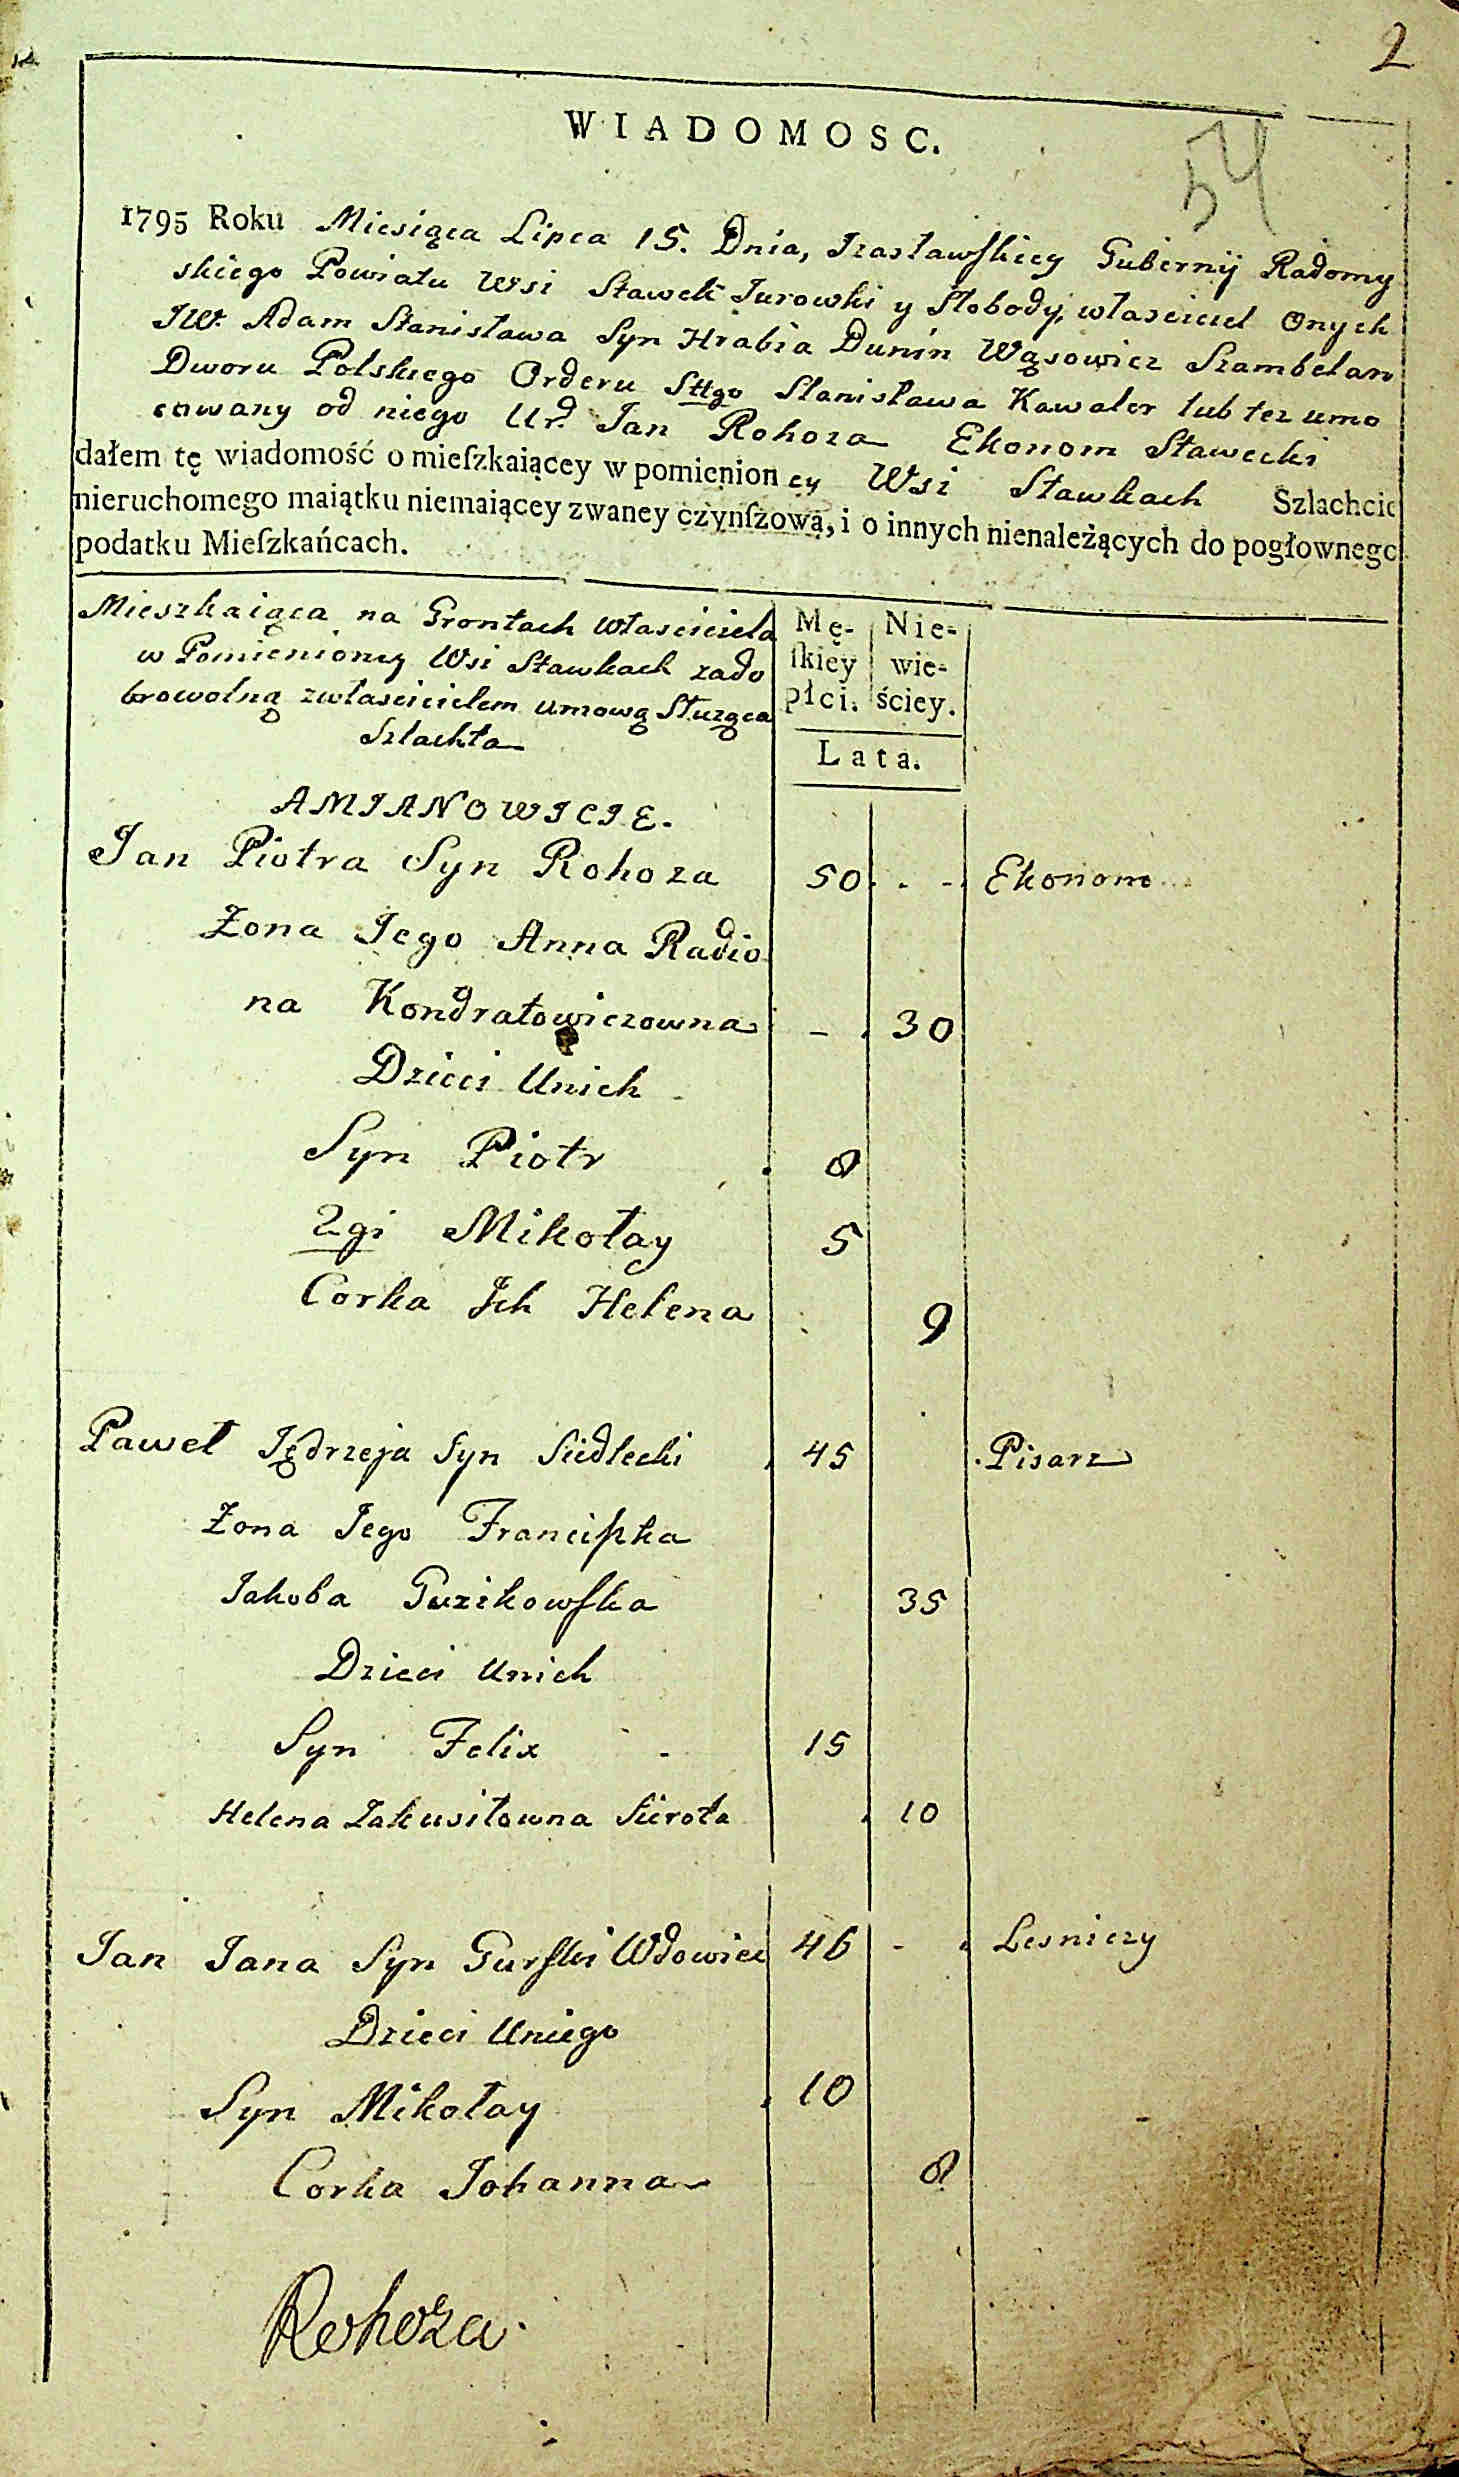 2
54
WIADOMOSC.
1795 Roku Miesiąca Lipca 15. Dnia, Izasławskiey Gubernij Radomy
skiego Powiatu Wsi Stawek Jurowki y Słobody, własciciel Onych
JW. Adam Stanisława Syn Hrabia Dunin Wąsowicz Szambelan
Dworu Polskiego Orderu Sttgo Stanisława Kawaler lub tez umo
cowany od niego Ur. Jan Rohoza Ekonom Stawecki
dałem tę wiadomość o mieſzkaiącey w pomienioney Wsi Stawkach Szlachcic
nieruchomego maiątku niemaiącey zwaney czynſzową, i o innych nienależących do pogłownego
podatku Mieſzkańcach.
Mieszkaiąca na Grontach własciciela
w Pomienioney Wsi Stawkach zado
browolną zwłascicielem umową Słuząca
Szlachta
Mę- Nie-
ſkiey wie-
płci. ściey.
Lata.
AMIANOWICIE.
Jan Piotra Syn Rohoza 50 . - Ekonom
Zona Jego Anna Radio
na Kondratowiczowna - 30
Dzieci Unich
Syn Piotr 8
2gi Mikołay 5
Corka Ich Helena 9
Paweł Jędrzeja Syn Siedlecki 45 Pisarz
Zona Jego Franciſzka
Jakoba Guzikowſka 35
Dzieci Unich
Syn Felix - 15
Helena Zakusiłowna Sierota 10
Jan Jana Syn Gurſki Wdowiec 46 - Lesniczy
Dzieci Uniego
Syn Mikołay 10
Corka Johanna 8
Rohoza.